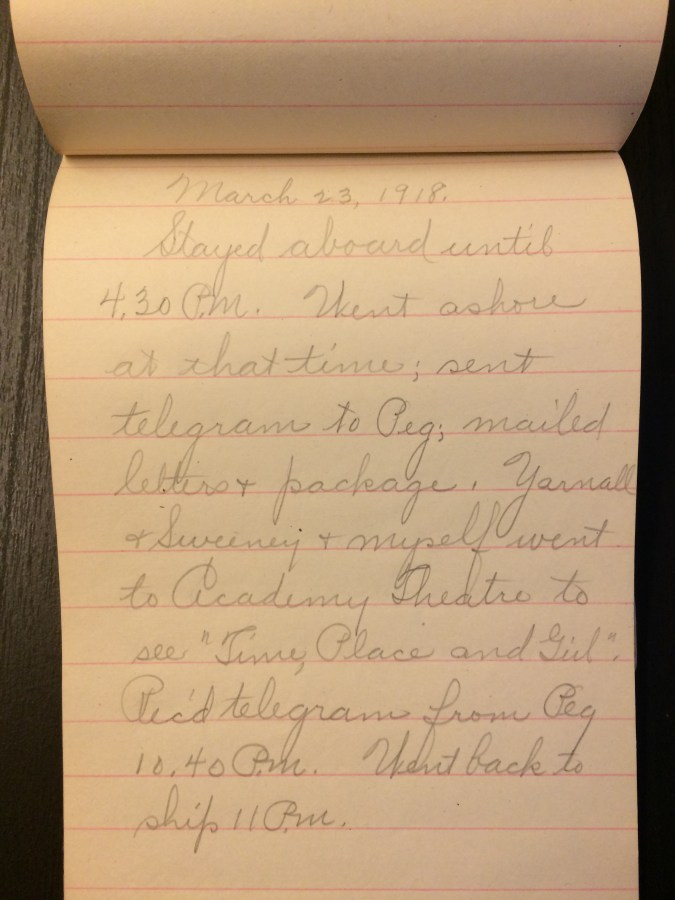 March 23, 1918.
Stayed aboard until
4.30 P.M. Went ashore
at that time; sent
telegram to Peg; mailed
letters & package. Yarnall
& Sweeney & myself went
to Academy Theatre to
see "Time, Place and Girl".
Rec'd telegram from Peg
10.40 P.M. Went back to
ship 11 P.M.